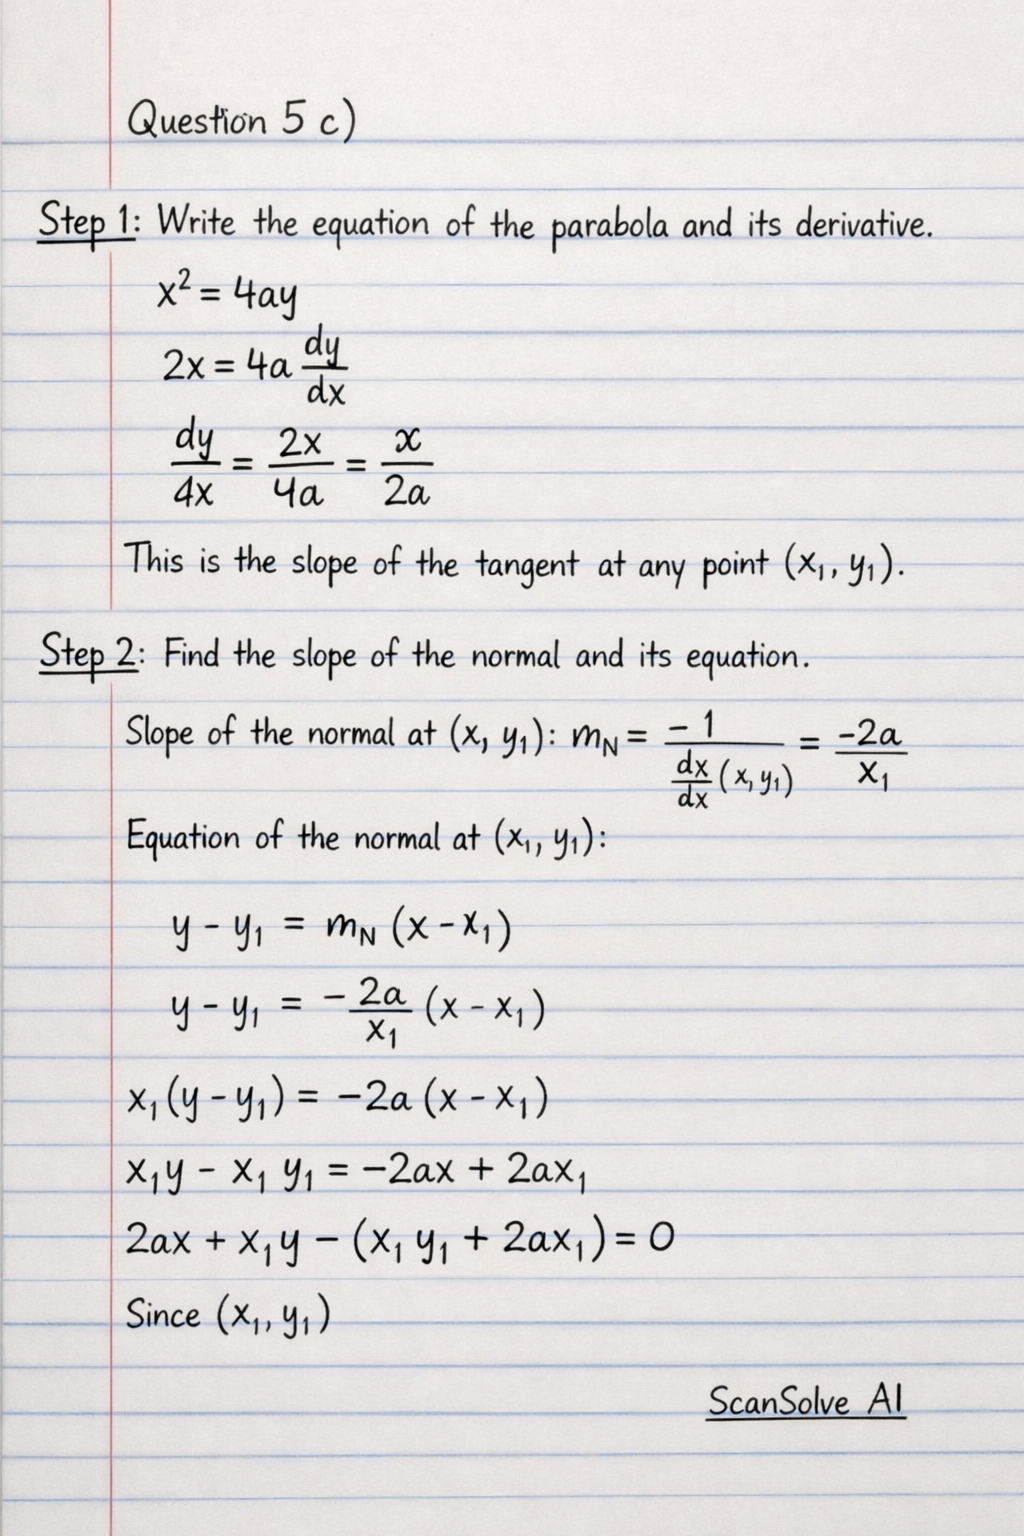 Question 5 c)
Step 1: Write the equation of the parabola and its derivative.
x² = 4ay
2x = 4a dy/dx
dy/4x = 2x/4a = x/2a
This is the slope of the tangent at any point (x₁, y₁).
Step 2: Find the slope of the normal and its equation.
Slope of the normal at (x, y₁): m_N = -1/(dx/dx (x, y₁)) = -2a/x₁
Equation of the normal at (x₁, y₁):
y - y₁ = m_N (x - x₁)
y - y₁ = - 2a/x₁ (x - x₁)
x₁(y - y₁) = -2a (x - x₁)
x₁y - x₁ y₁ = -2ax + 2ax₁
2ax + x₁y - (x₁ y₁ + 2ax₁) = 0
Since (x₁, y₁)
ScanSolve AI